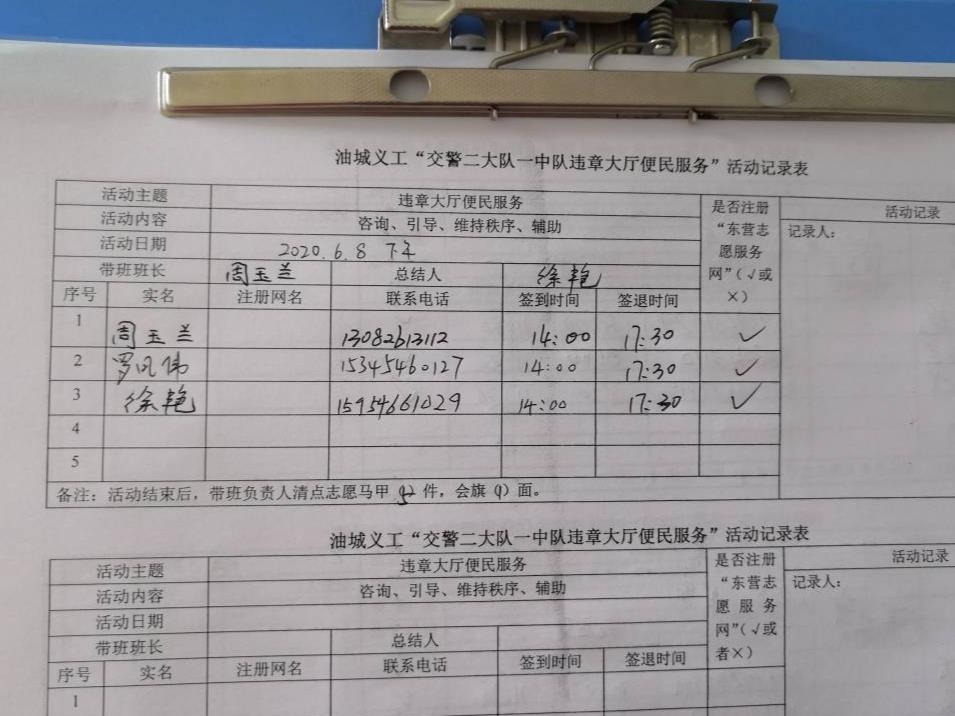 油城义工“交警二大队一中队违章大厅便民服务”活动记录表
活动主题 违章大厅便民服务 是否注册“东营志愿服务网”（√或×） 活动记录
活动内容 咨询、引导、维持秩序、辅助 记录人：
活动日期 2020.6.8 下午
带班班长 周玉兰 总结人 徐艳
序号 实名 注册网名 联系电话 签到时间 签退时间
1 周玉兰 13082613112 14:00 17:30 ✓
2 罗凤伟 15345460127 14:00 17:30 ✓
3 徐艳 15954661029 14:00 17:30 ✓
4
5
备注：活动结束后，带班负责人清点志愿马甲 件，会旗（1）面。
油城义工“交警二大队一中队违章大厅便民服务”活动记录表
活动主题 违章大厅便民服务 是否注册“东营志愿服务网”（√或者×） 活动记录
活动内容 咨询、引导、维持秩序、辅助 记录人：
活动日期
带班班长 总结人
序号 实名 注册网名 联系电话 签到时间 签退时间
1